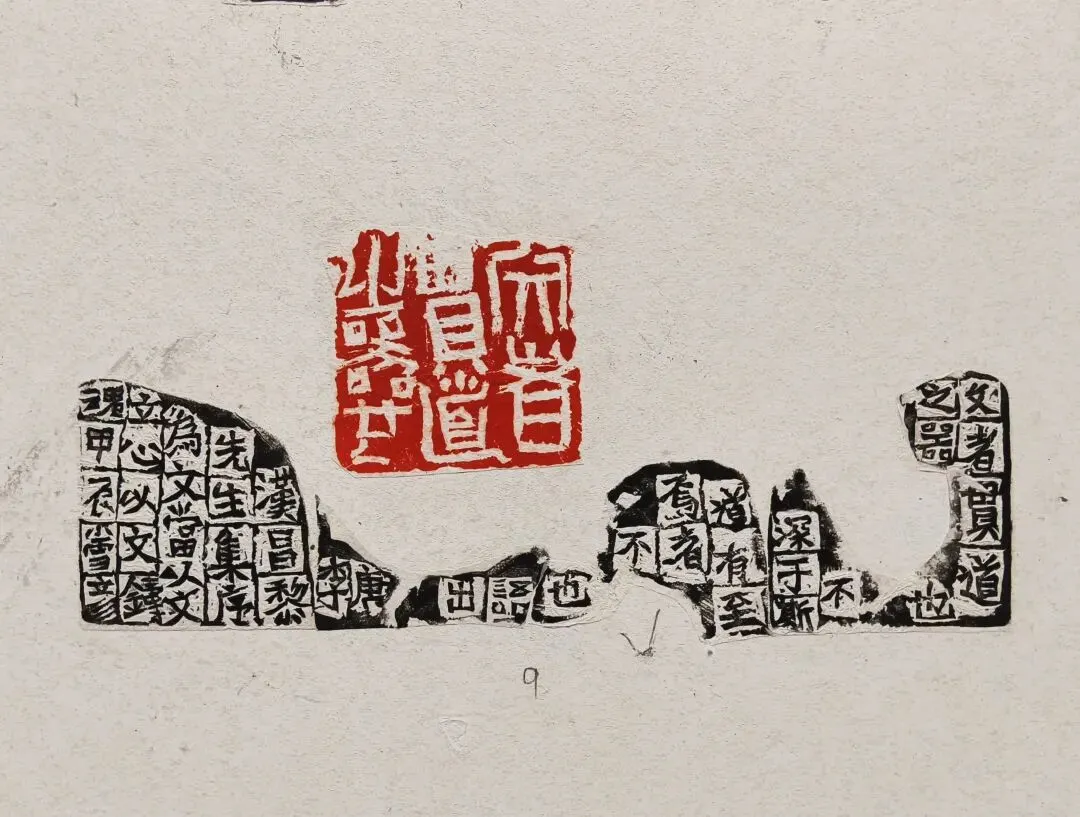 文者
貫道
之器也
文者貫道
之器也
不
深于斯
道有至
焉者
不
也
語
出
唐
李
漢昌黎
先生集序
為文當以文
立心以文鑄
魂甲辰雪彦
9